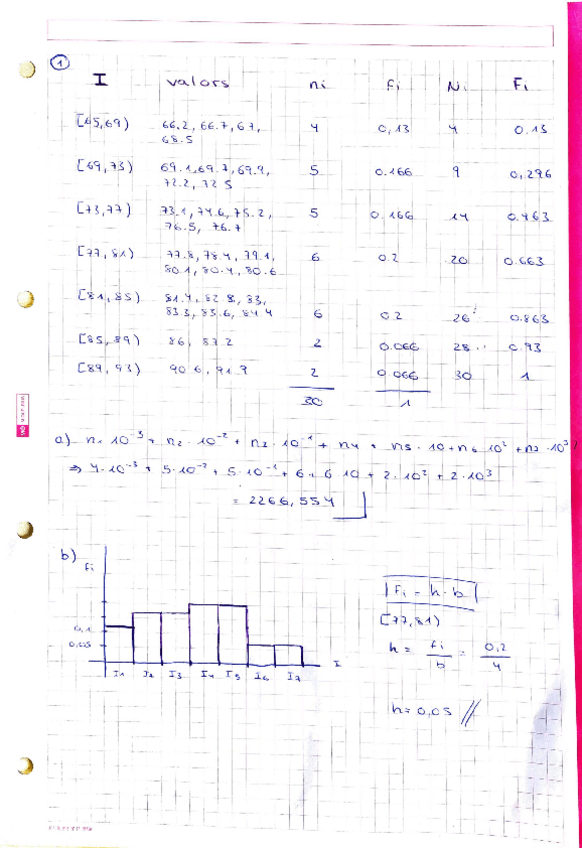 1
I valors ni fi Ni Fi
[65,69) 66.2, 66.7, 67, 4 0,13 4 0.13
68.5
[69,73) 69.1, 69.7, 69.9, 5 0.166 9 0,296
72.2, 72.5
[73,77) 73.1, 74.6, 75.2, 5 0.166 14 0.463
76.5, 76.7
[77,81) 77.8, 78.4, 79.1, 6 0.2 20 0.663
80.1, 80.4, 80.6
[81,85) 81.4, 82.8, 83, 6 0.2 26 0.863
83.3, 83.6, 84.4
[85,89) 86, 87.2 2 0.066 28 0.93
[89,93) 90.6, 91.9 2 0.066 30 1
30 1
a) n1·10⁻³ + n2·10⁻² + n3·10⁻¹ + n4 + n5·10 + n6 10² + n7·10³
⇒ 4·10⁻³ + 5·10⁻² + 5·10⁻¹ + 6 + 6·10 + 2·10² + 2·10³
= 2266,554
b)
fi
0,1
0,05
I1 I2 I3 I4 I5 I6 I7 I
Fi = h·b
[77,81)
h = fi/b = 0,2/4
h = 0,05 //